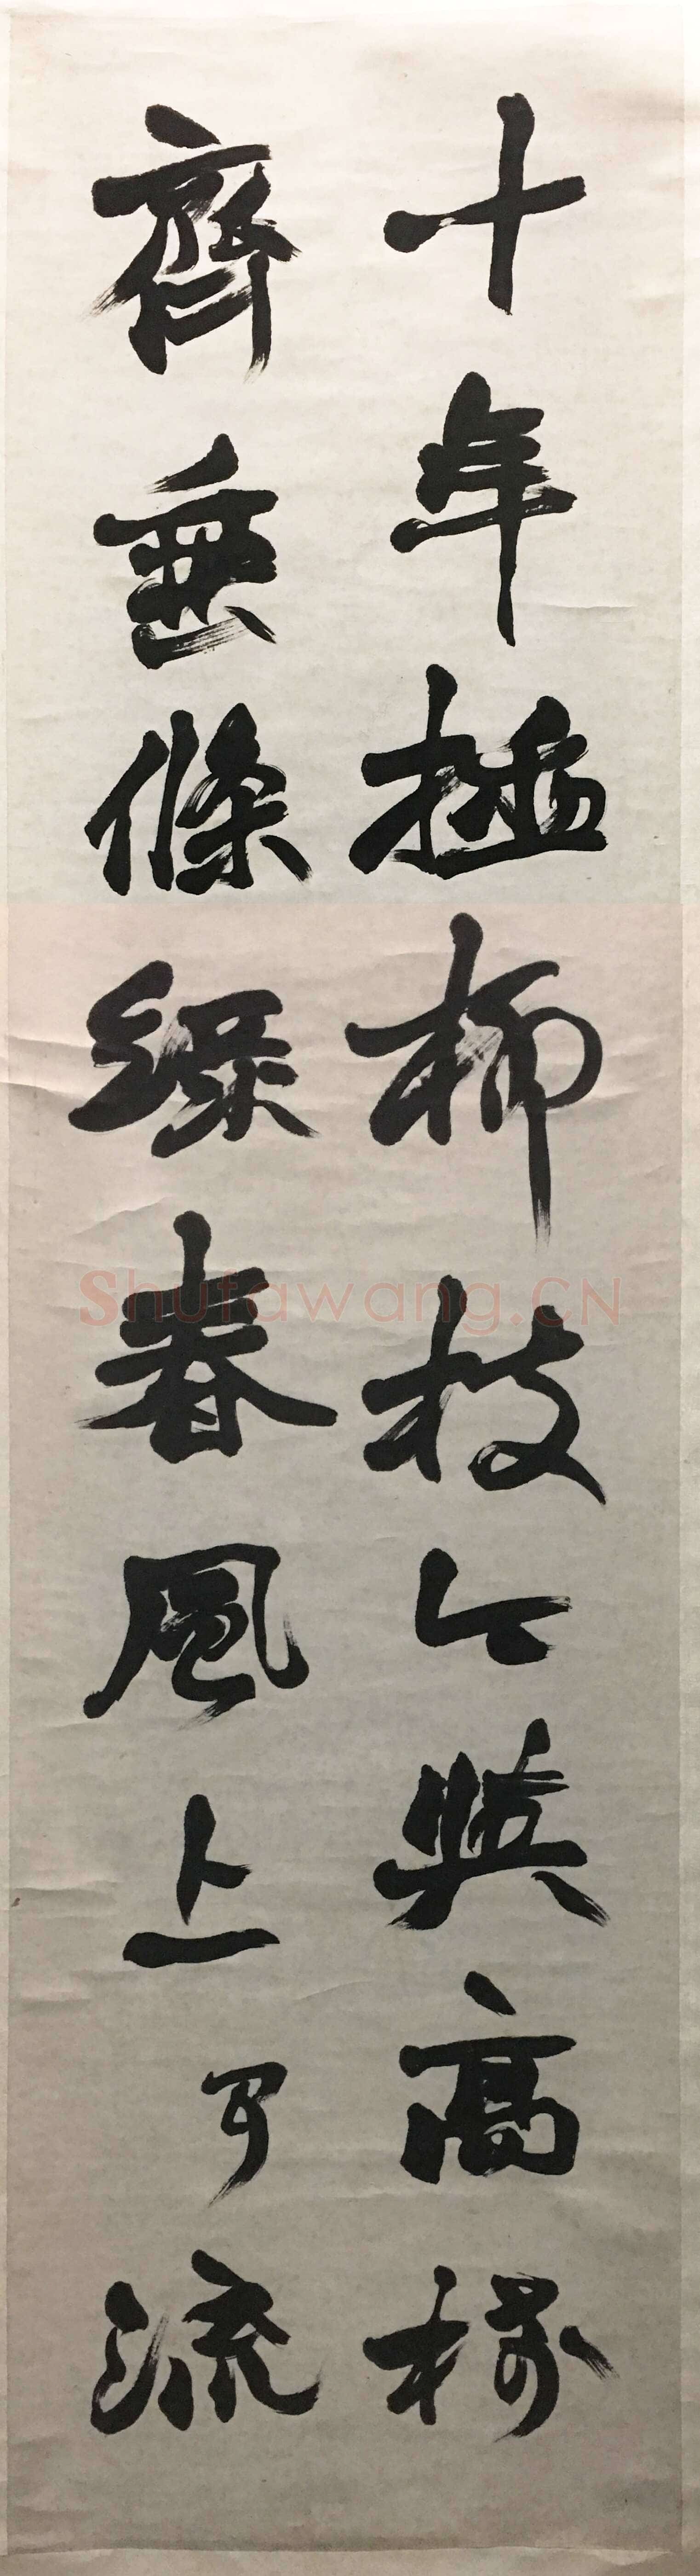 十年插柳枝亦與高樓
齊垂條綠春風上可流
Shufawang.CN